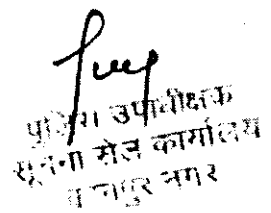 पुलिस उपाधीक्षक
सूचना सेल कार्यालय
कानपुर नगर